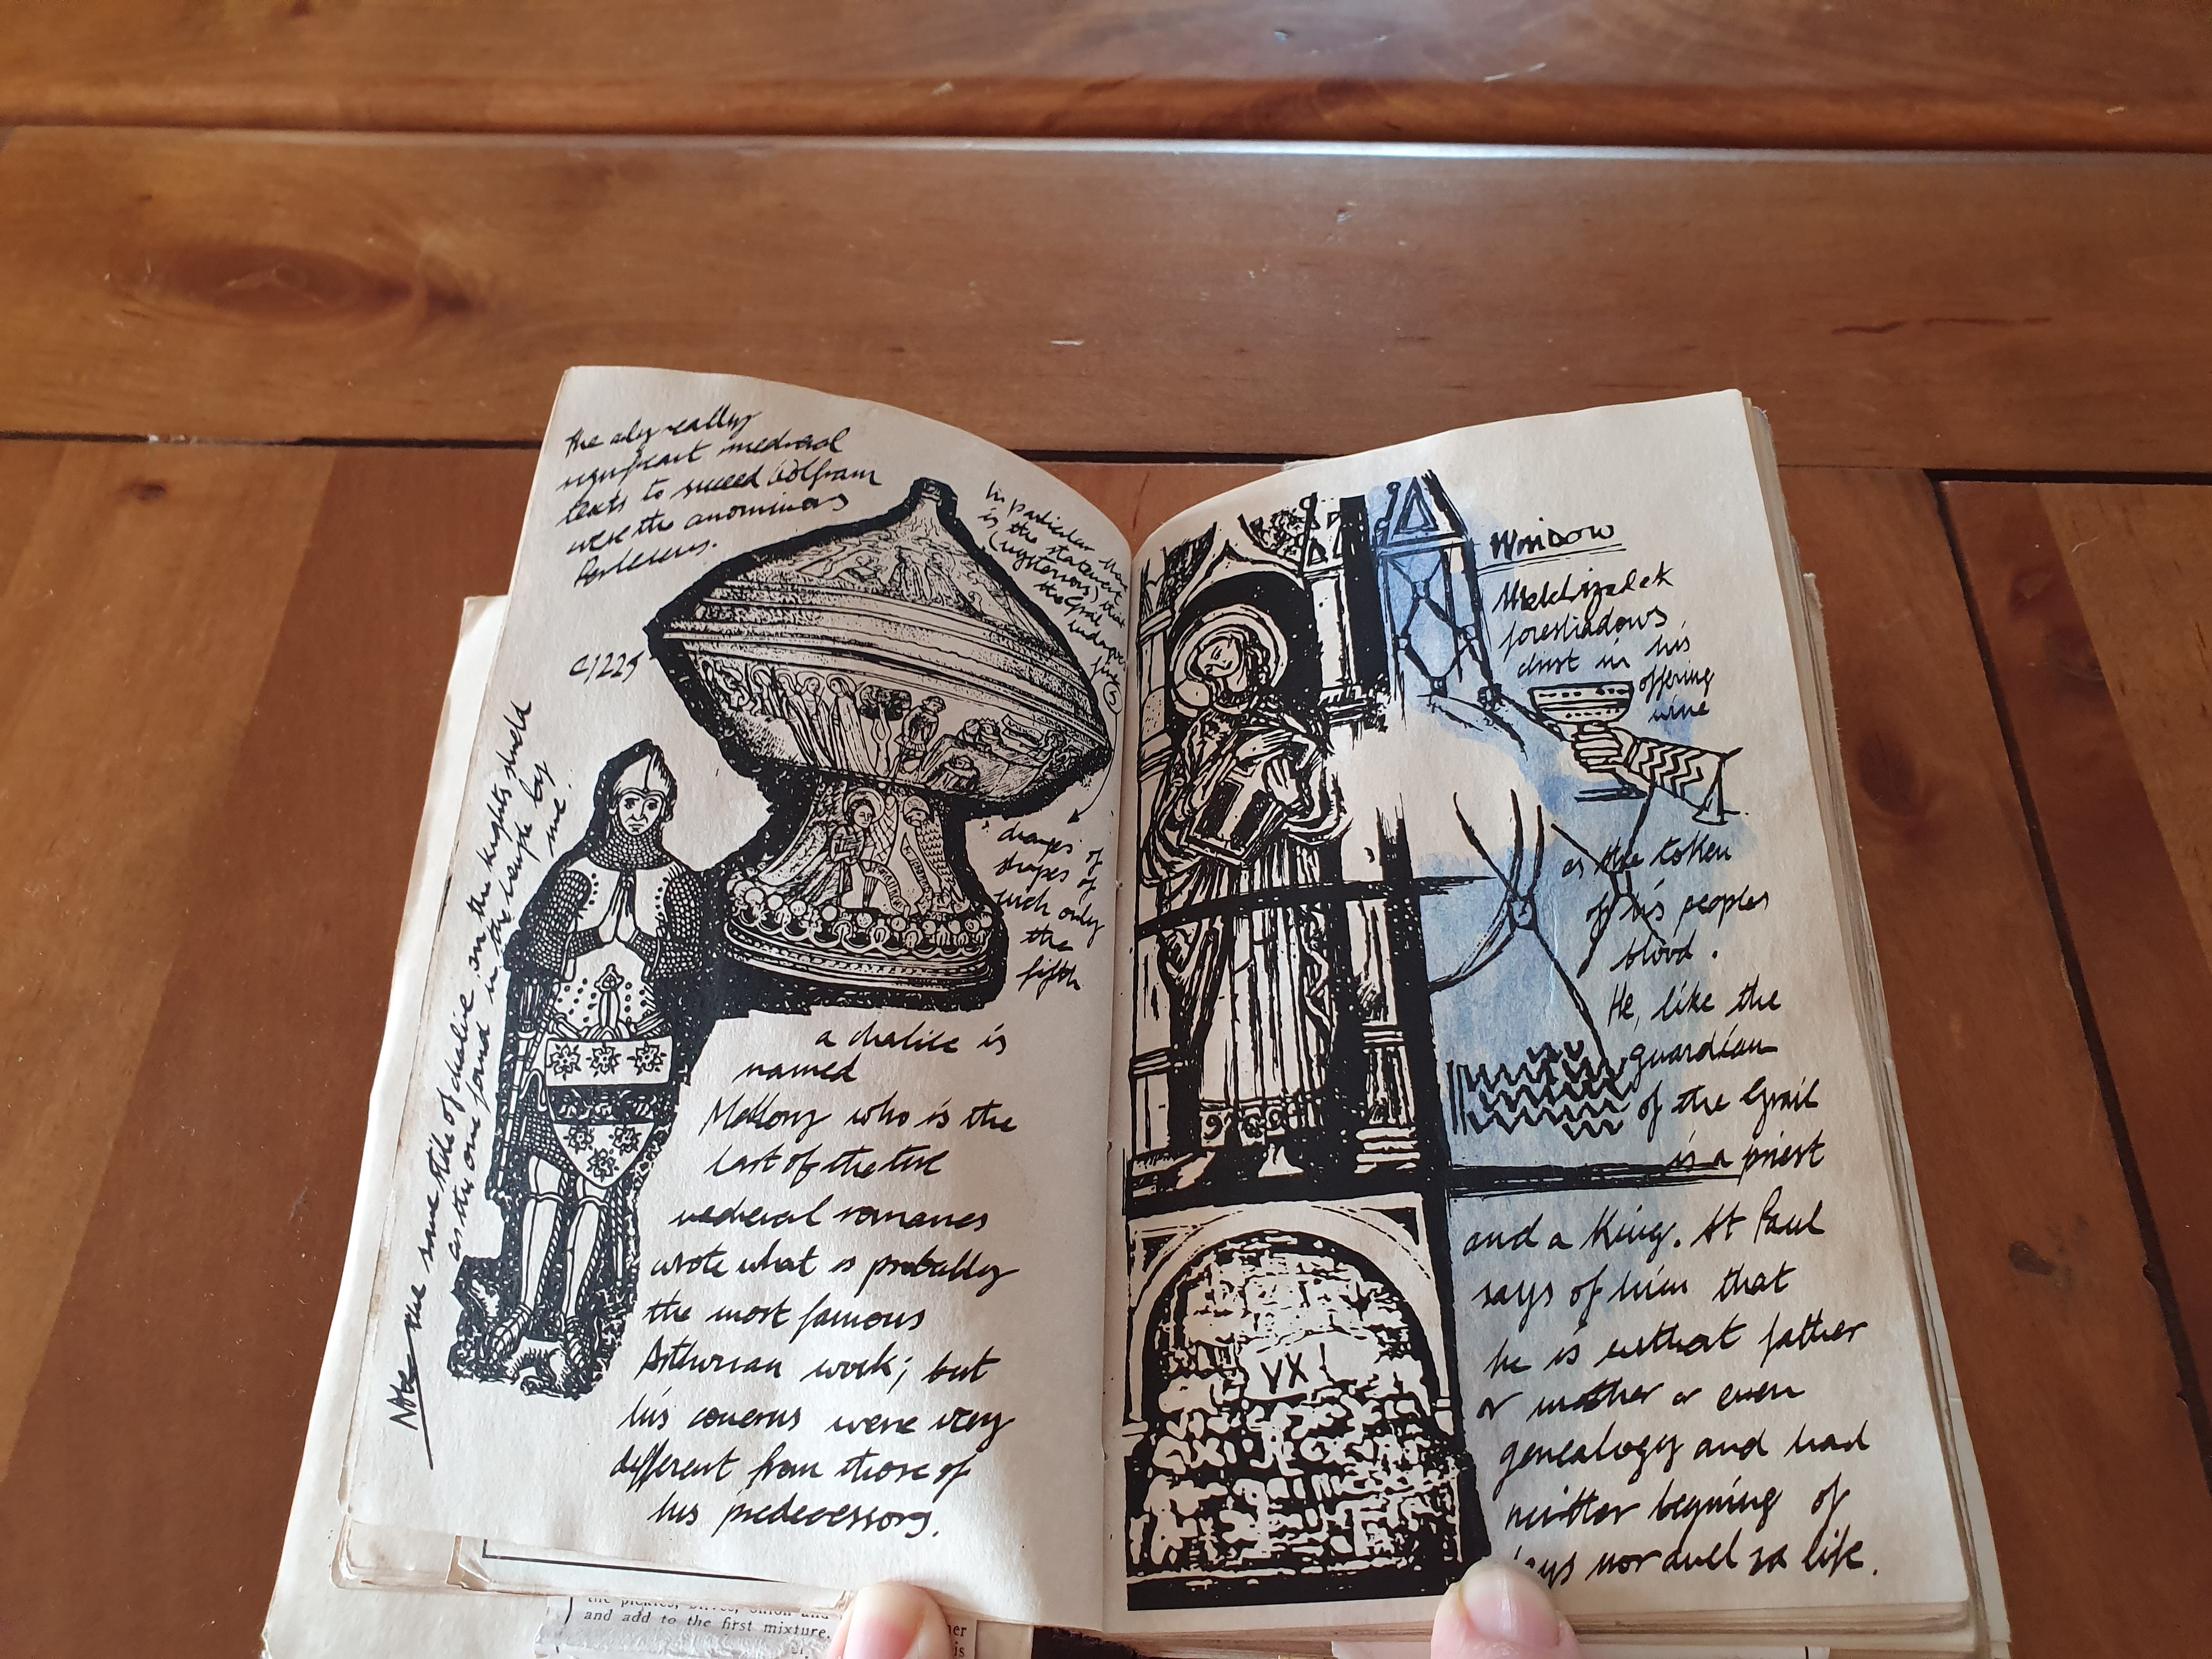 the only really
significant medieval
texts to succeed Wolfram
were the anominous
Perlesvus.
In particular
is the statement
(mysterious) that
the Grail
c/1225
5
changes of
shapes of
such only
the
fifth
a chalice is
named
Mallory who is the
last of the true
medieval romances
wrote what is probably
the most famous
Arthurian work; but
his concerns were very
different from those of
his predecessors.
Note same stile of chalice on the knights shield
as the one found in the temple by
me!
Window
Melchizedek
foreshadows
christ in his
offering
wine
as the token
of his peoples
blood.
He, like the
guardian
of the Grail
is a priest
and a King. St Paul
says of him that
he is without father
or mother or even
genealogy and had
neither begining of
days nor life.
VX
and add to the first mixture.